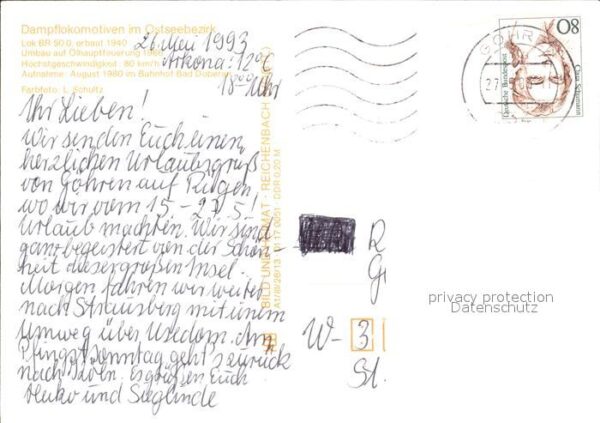 Dampflokomotiven im Ostseebezirk
Lok BR 50.0, erbaut 1940
Umbau auf Ölhauptfeuerung 1966
Höchstgeschwindigkeit: 80 km/h
Aufnahme: August 1980 im Bahnhof Bad Doberan
Farbfoto: L. Schultz
26. Mai 1993
Arkona: 12°C
18⁰⁰ Uhr
Ihr Lieben!
Wir senden Euch einen
herzlichen Urlaubsgruß
von Göhren auf Rügen,
wo wir vom 15. - 27.5.!
Urlaub machten. Wir sind
ganz begeistert von der Schön-
heit dieser großen Insel.
Morgen fahren wir weiter
nach Strausberg mit einem
Umweg über Usedom. Am
Pfingstsonntag geht's zurück
nach Es grüßen Euch
Heiko und Sieglinde
BILD UND HEIMAT · REICHENBACH
A1/III/26/13 DDR 0,20 M
GÖHR
27
80
Deutsche Bundespost
Clara Schumann
R
G
W- 3
St.
privacy protection
Datenschutz